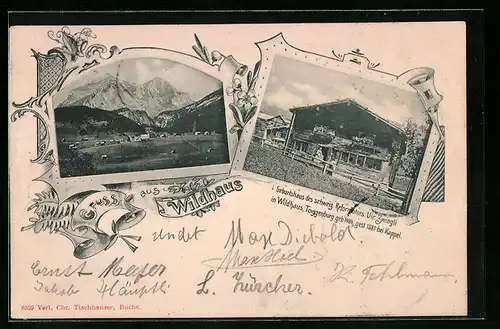 Gruss
aus
Wildhaus
Geburtshaus des schweiz. Reformators Ulr. Zwingli
in Wildhaus, Toggenburg geb.
gest. bei Kappel.
sendet
Max Diebold.
Max Hoch
Ernst Meyer
Jakob Häuptli
L. Zürcher.
K. Fehlmann
8529 Verl. Chr. Tischhauser, Buchs.